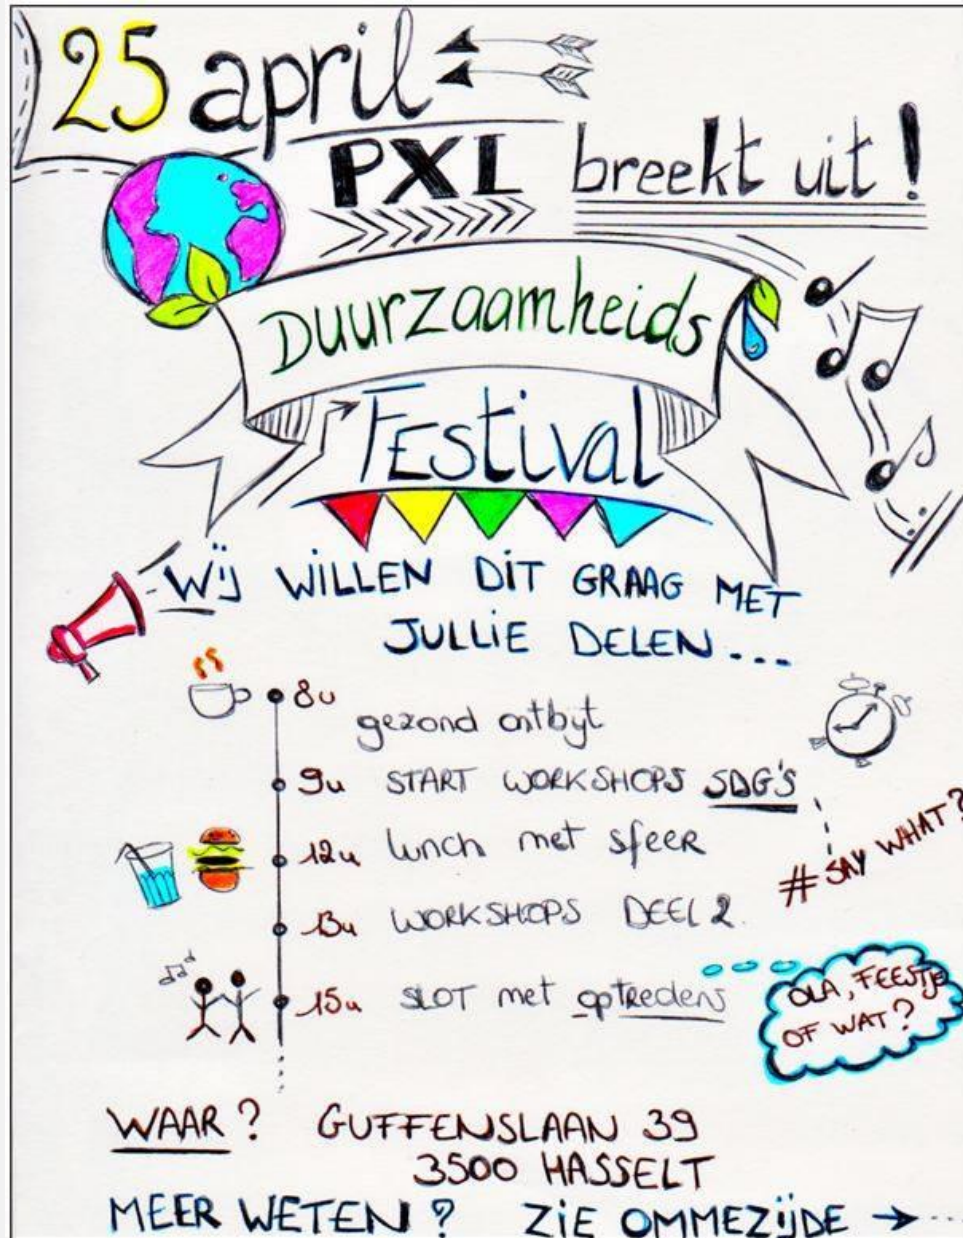 25 april
PXL breekt uit!
Duurzaamheids
Festival
Wij WiLLEN DiT GRAAG MET
JULLiE DELEN...
8u
gezond ontbijt
9u START WORKSHOPS SDG'S
#SAY WHAT?
12u lunch met sfeer
13u WORKSHOPS DEEL 2.
15u SLOT met optredens
OLA, FEESTje
OF WAT?
WAAR? GUFFENSLAAN 39
3500 HASSELT
MEER WETEN? ZiE OMMEZijDE →...